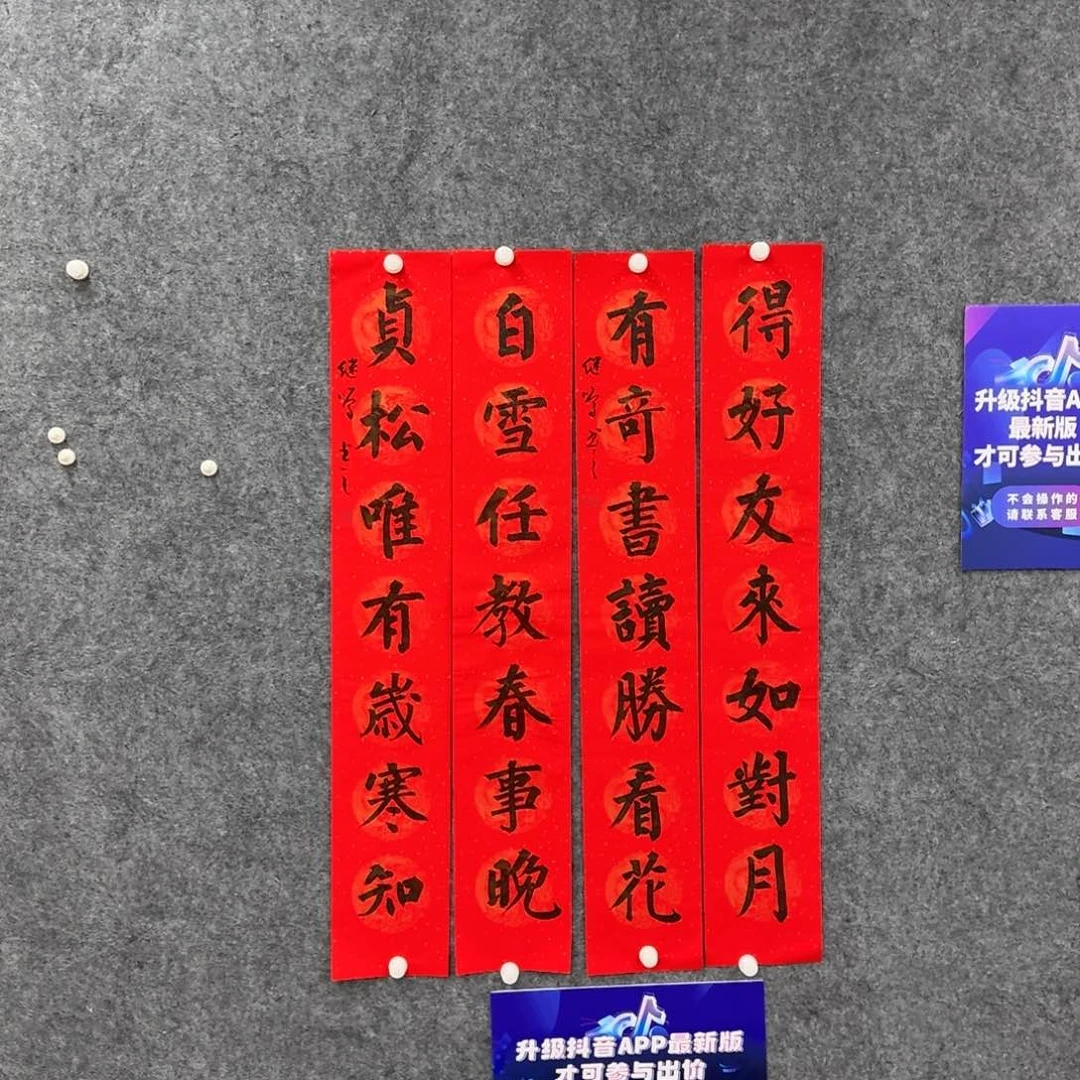 得好友來如對月
有奇書讀勝看花
白雪任教春事晚
貞松唯有歲寒知
升级抖音A
最新版
才可参与出
不会操作的
请联系客服
升级抖音APP最新版
才可参与出价